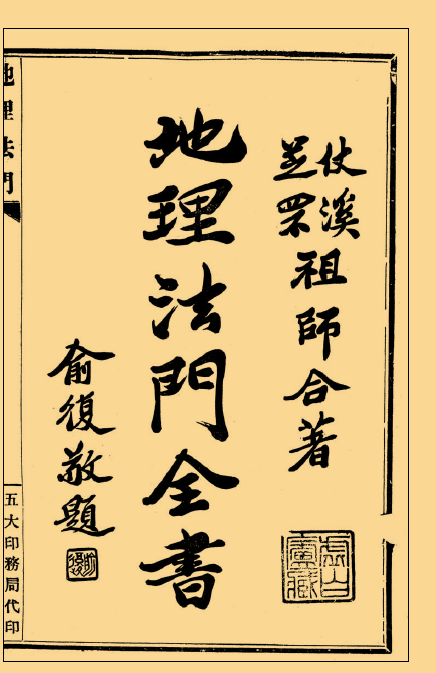 仗溪
芝罘
祖師合著
地理法門全書
俞復敬題
俞復
虛白廬藏
地理法門
五大印務局代印